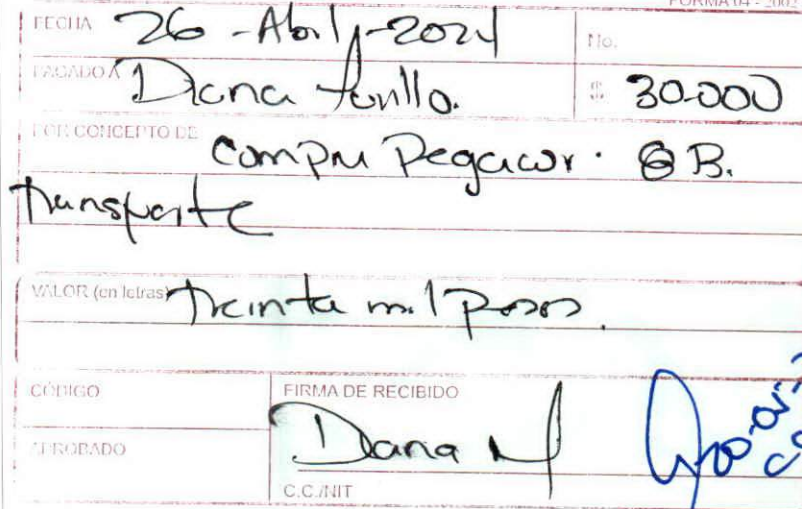 FORMA 04 - 2002
FECHA 26 - Abril - 2024
No.
PAGADO A Diana
$ 30.000
POR CONCEPTO DE Compra Pegacor. B.
Transporte
VALOR (en letras) Treinta mil pesos.
CÓDIGO
FIRMA DE RECIBIDO
Diana M
APROBADO
C.C./NIT